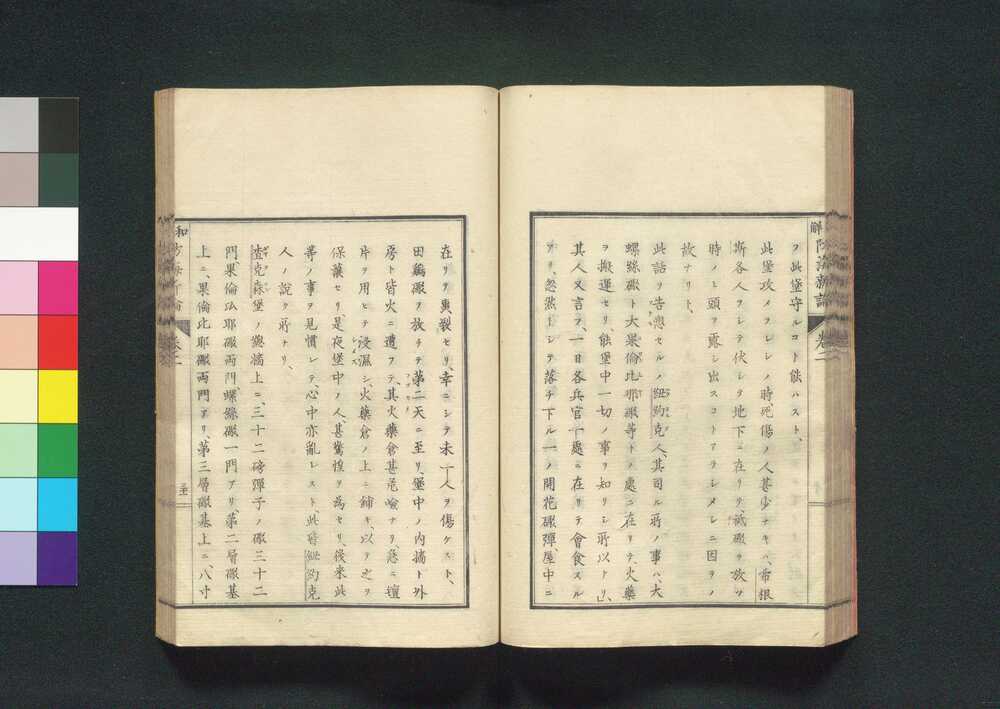 ヲ此堡守ルコト能ハスト、
此堡攻メラレシノ時、死傷ノ人甚少ナキハ、希根
斯各人ヲシテ伏シテ地下ニ在リテ、
時ノミ頭ヲ露シ出スコトアラシメシニ因ルノ
故ナリト、
此話ヲ告愬セルノ紐約克人、其司ル所ノ事ハ、大
螺絲礟ト大果倫比耶礟等トノ處ニ在リテ、火藥
ヲ搬運セリ、能堡中一切ノ事ヲ知リシ所以トリ、
其人又言フ、一日各兵官一處ニ在リテ會食スル
アリ、忽然トシテ落チ下ル一ノ開花礟彈、屋中ニ
在リテ爆裂セリ、幸ニシテ未一人ヲ傷ケスト、
田鷄礟ヲ放チテ、第二天ニ至リ、堡中ノ内墻ト外
房ト皆火ニ遭フテ、其火藥倉甚危險ナリ、急ニ壇
片ヲ用ヒテ浸濕シ、火藥倉ノ上ニ鋪キ、以テ之ヲ
保護セリ、是夜堡中ノ人甚驚惶ヲ為セリ、後来此
等ノ事ヲ見慣レテ、心中亦亂レスト、此皆紐約克
人ノ說ク所ナリ、
查克森堡ノ墻上ニ、三十二磅彈子ノ礟三十二
門、果倫比耶礟兩門、螺絲礟一門アリ、第二層礟基
上ニ、果倫比耶礟兩門アリ、第三層礟基上ニ、八寸